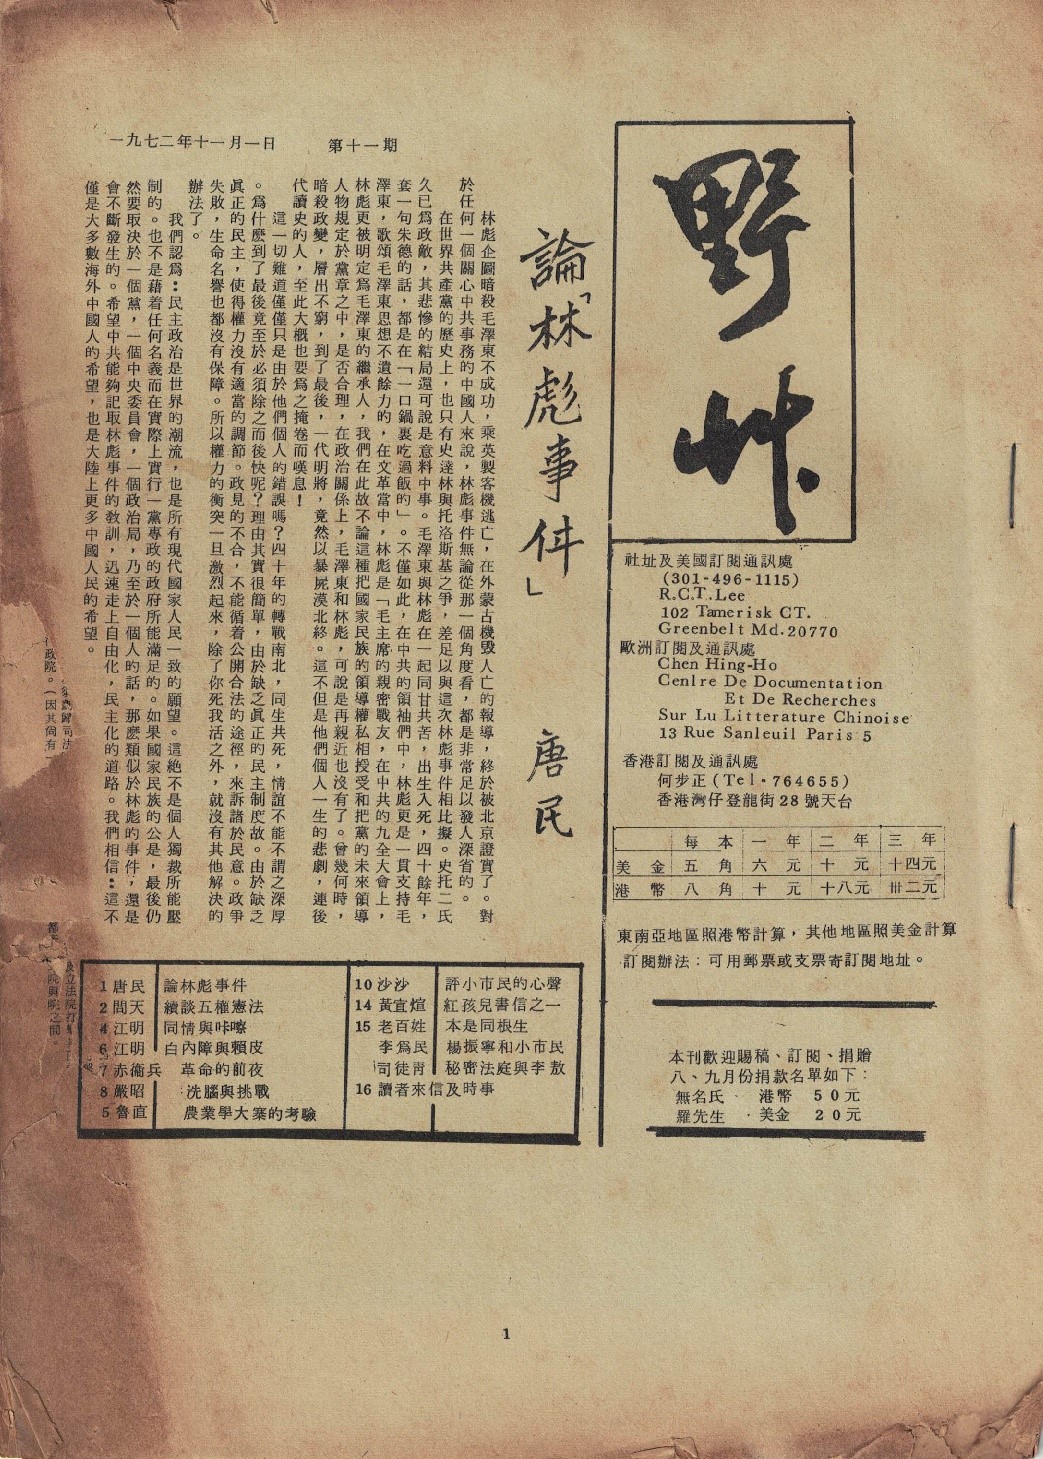 野艸
一九七二年十一月一日 第十一期
論「林彪事件」
唐民
林彪企圖暗殺毛澤東不成功,乘英製客機逃亡,在外蒙古機毀人亡的報導,終於被北京證實了。對
於任何一個關心中共事務的中國人來說,林彪事件無論從那一個角度看,都是非常足以發人深省的。
在世界共產黨的歷史上,也只有史達林與托洛斯基之爭,差足以與這次林彪事件相比擬。史托二氏
久已為政敵,其悲慘的結局還可說是意料中事。毛澤東與林彪在一起同甘共苦,出生入死,四十餘年,
套一句朱德的話,都是在「一口鍋裏吃過飯的」。不僅如此,在中共的領袖們中,林彪更是一貫支持毛
澤東,歌頌毛澤東思想不遺餘力的,在文革當中,林彪是「毛主席的親密戰友,在中共的九全大會上,
林彪更被明定為毛澤東的繼承人,我們在此故不論這種把國家民族的領導權私相授受和把黨的未來領導
人物規定於黨章之中,是否合理,在政治關係上,毛澤東和林彪,可說是再親近也沒有了。曾幾何時,
暗殺政變,層出不窮,到了最後,一代明將,竟然以暴屍漠北終。這不但是他們個人一生的悲劇,連後
代讀史的人,至此大概也要為之掩卷而嘆息!
這一切難道僅僅只是由於他們個人的錯誤嗎?四十年的轉戰南北,同生共死,情誼不能不謂之深厚
。為什麼到了最後竟至於必須除之而後快呢?理由其實很簡單,由於缺乏眞正的民主制度故。由於缺乏
眞正的民主,使得權力沒有適當的調節。政見的不合,不能循着公開合法的途徑,來訴諸於民意。政爭
失敗,生命名譽也都沒有保障。所以權力的衝突一旦激烈起來,除了你死我活之外,就沒有其他解決的
辦法了。
我們認為:民主政治是世界的潮流,也是所有現代國家人民一致的願望。這絶不是個人獨裁所能壓
制的。也不是藉着任何名義而在實際上實行一黨專政的政府所能滿足的。如果國家民族的公是,最後仍
然要取決於一個黨,一個中央委員會,一個政治局,乃至於一個人的話,那麼類似於林彪的事件,還是
會不斷發生的。希望中共能夠記取林彪事件的敎訓,迅速走上自由化,民主化的道路。我們相信:這不
僅是大多數海外中國人的希望,也是大陸上更多中國人民的希望。
社址及美國訂閱通訊處
(301-496-1115)
R.C.T. Lee
102 Tamerisk CT.
Greenbelt Md. 20770
歐洲訂閱及通訊處
Chen Hing-Ho
Cenlre De Documentation
Et De Recherches
Sur Lu Litterature Chinoise
13 Rue Sanleuil Paris 5
香港訂閱及通訊處
何步正 (Tel·764655)
香港灣仔登龍街28號天台
每本 一年 二年 三年
美金 五角 六元 十元 十四元
港幣 八角 十元 十八元 卅二元
東南亞地區照港幣計算,其他地區照美金計算
訂閱辦法:可用郵票或支票寄訂閱地址。
本刊歡迎賜稿、訂閱、捐贈
八、九月份捐款名單如下:
無名氏 港幣 50元
羅先生 美金 20元
1 唐民 論林彪事件
2 問天 續談五權憲法
4 江明 同情與咔嚓
6 江明 白內障與賴皮
7 赤衞兵 革命的前夜
8 嚴昭 洗腦與挑戰
5 魯直 農業學大寨的考驗
10 沙沙 評小市民的心聲
14 黃宣煊 紅孩兒書信之一
15 老百姓 本是同根生
李為民 楊振寧和小市民
司徒靑 秘密法庭與李敖
16 讀者來信及時事
政院。(因其尙有
1